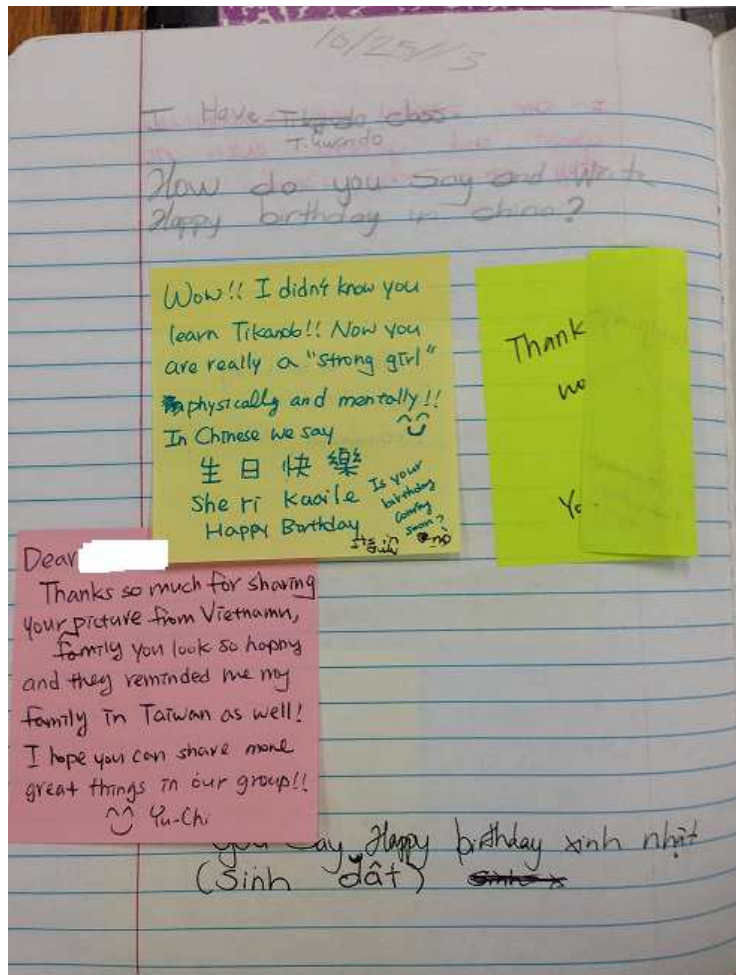 10/25/13
I Have Tikando class
Tikwondo
How do you say and write
Happy birthday in china?
Wow!! I didn't know you
learn Tikando!! Now you
are really a "strong girl"
physically and mentally!!
In Chinese we say
生日快樂
She ri Kuaile
Happy Birthday
Is your
birthday
coming
soon?
no
Thank
Dear
Thanks so much for sharing
your picture from Vietnamn,
family you look so happy
and they reminded me my
family in Taiwan as well!
I hope you can share more
great things in our group!!
Yu-Chi
you say Happy birthday xinh nhật
(Sinh dất)